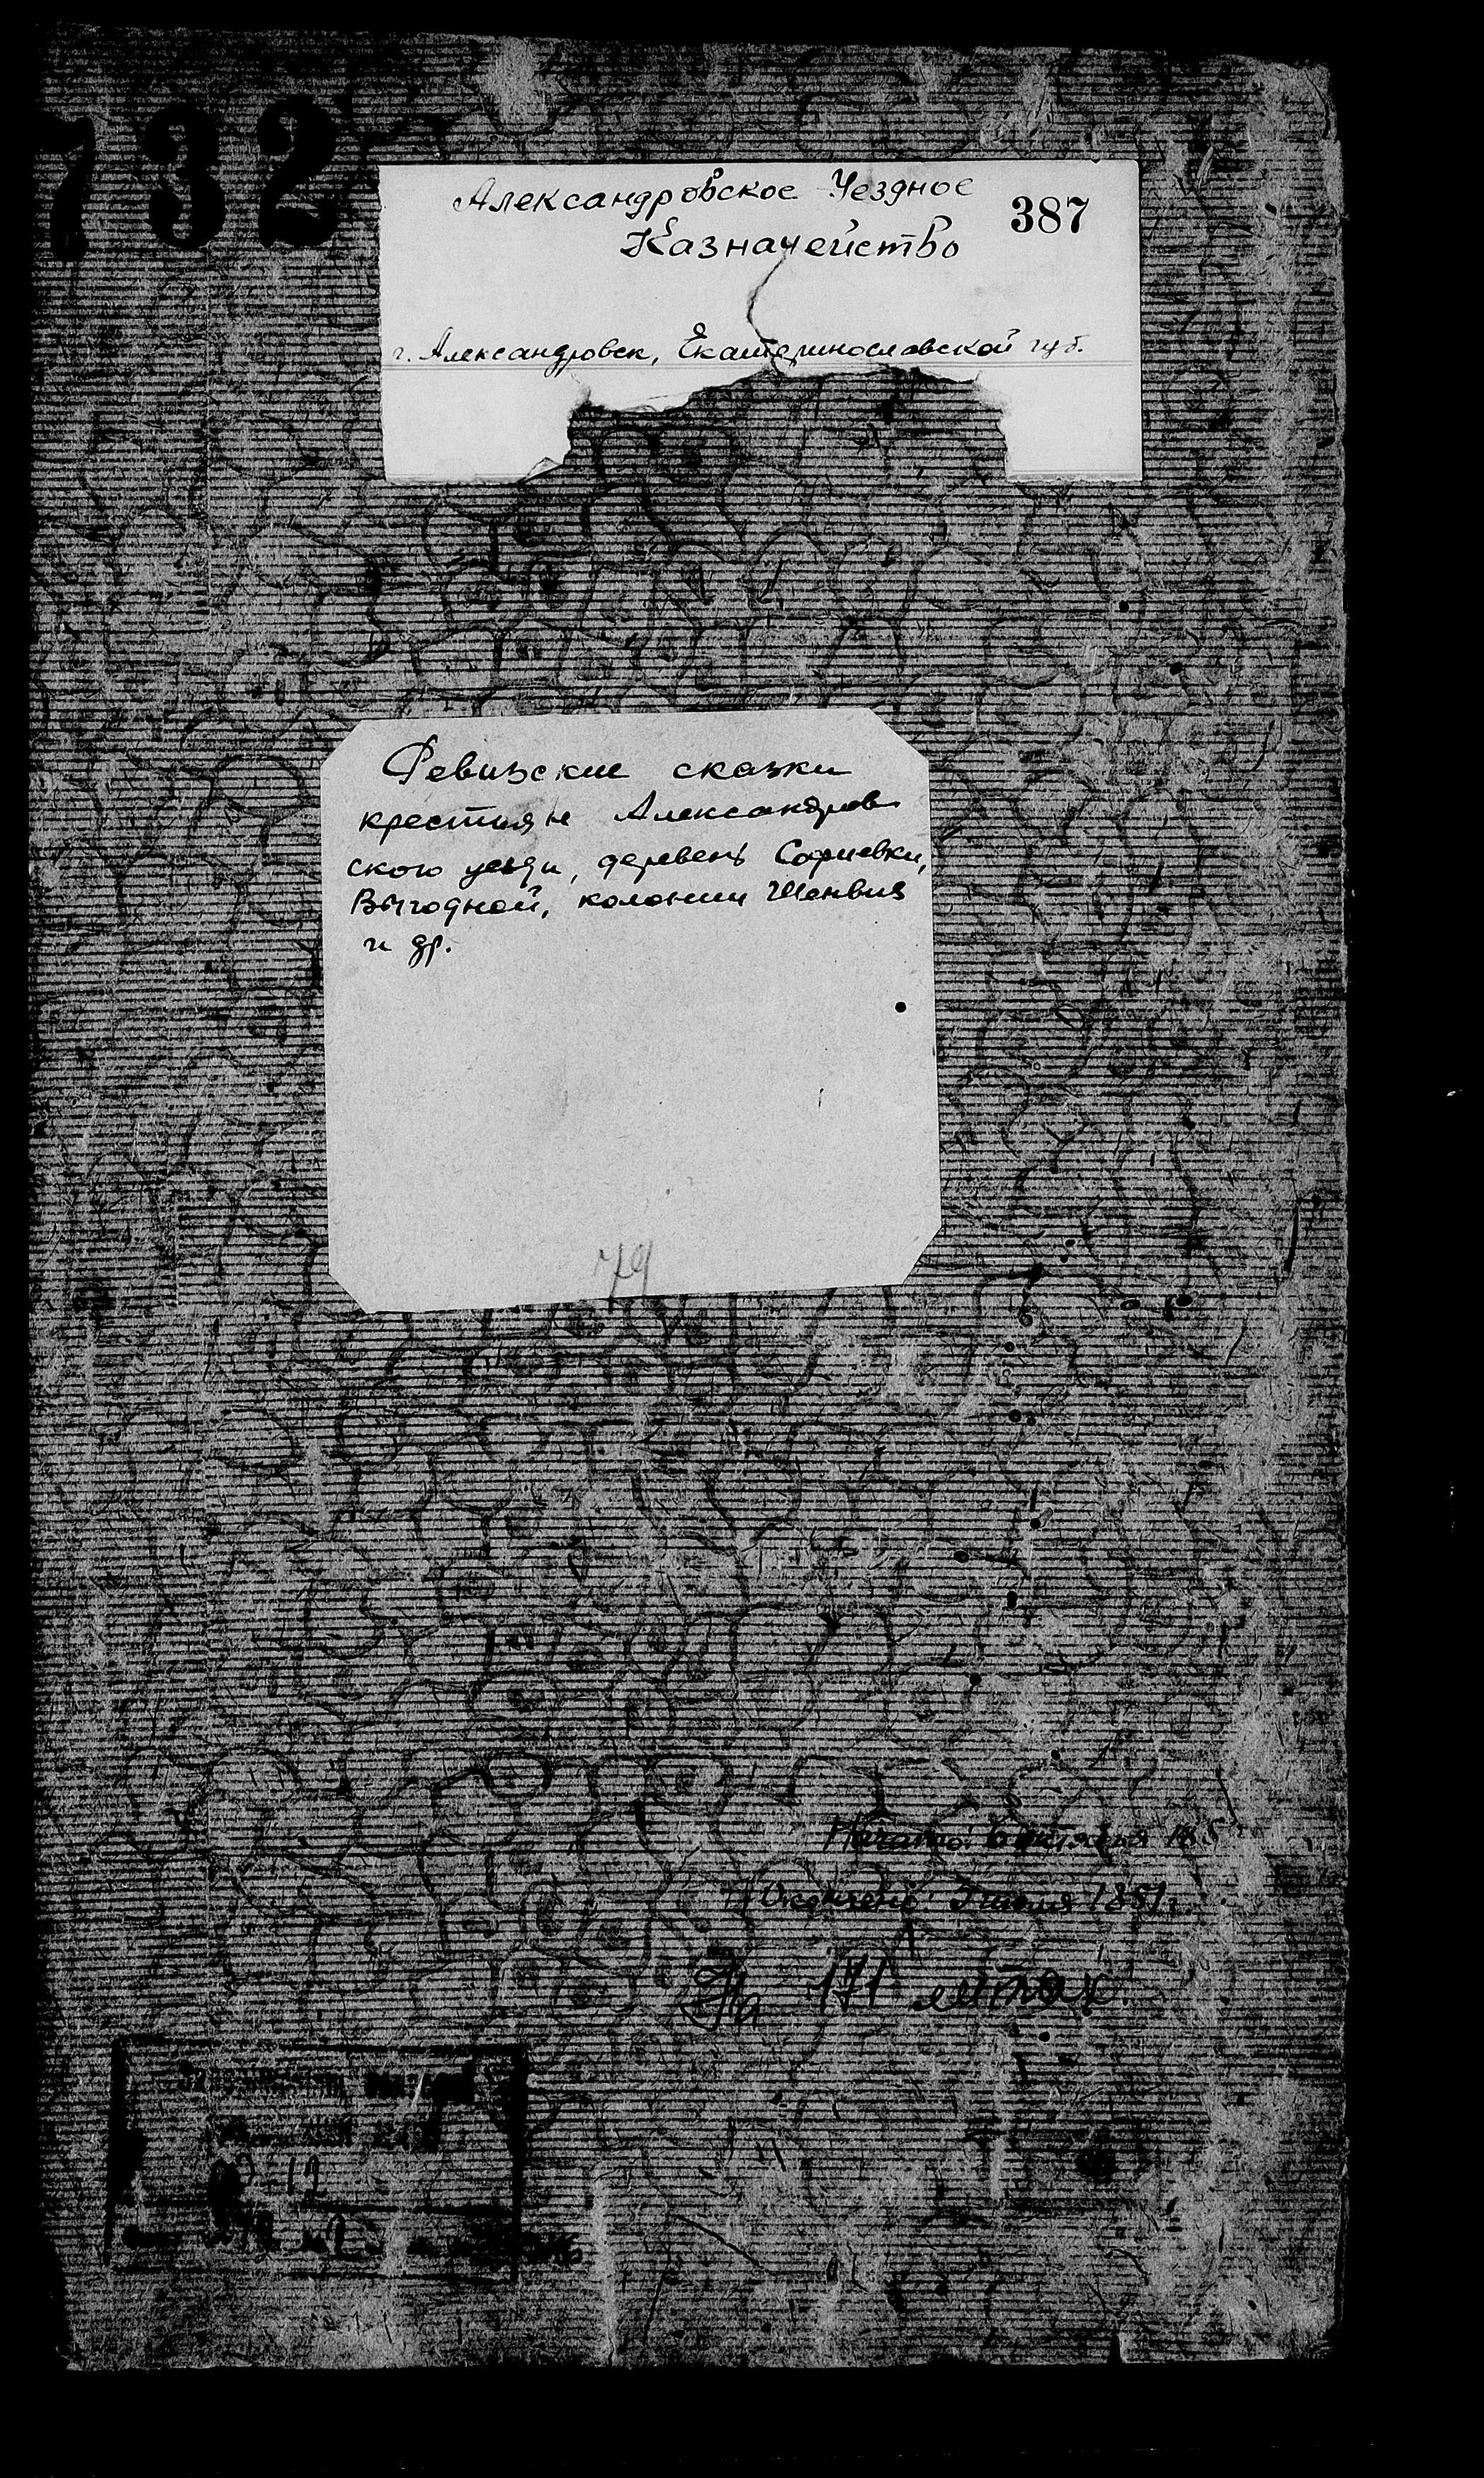 732
Александровское Уездное
387
Казначейство
г. Александровск, Екатеринославской губ.
Ревизские сказки
крестьян Александров
ского уезда, деревень Софиевки,
Выгодной, колонии Шенвиз
и др.
79
Начато:
Окончено: 1851г.
На 171 листах